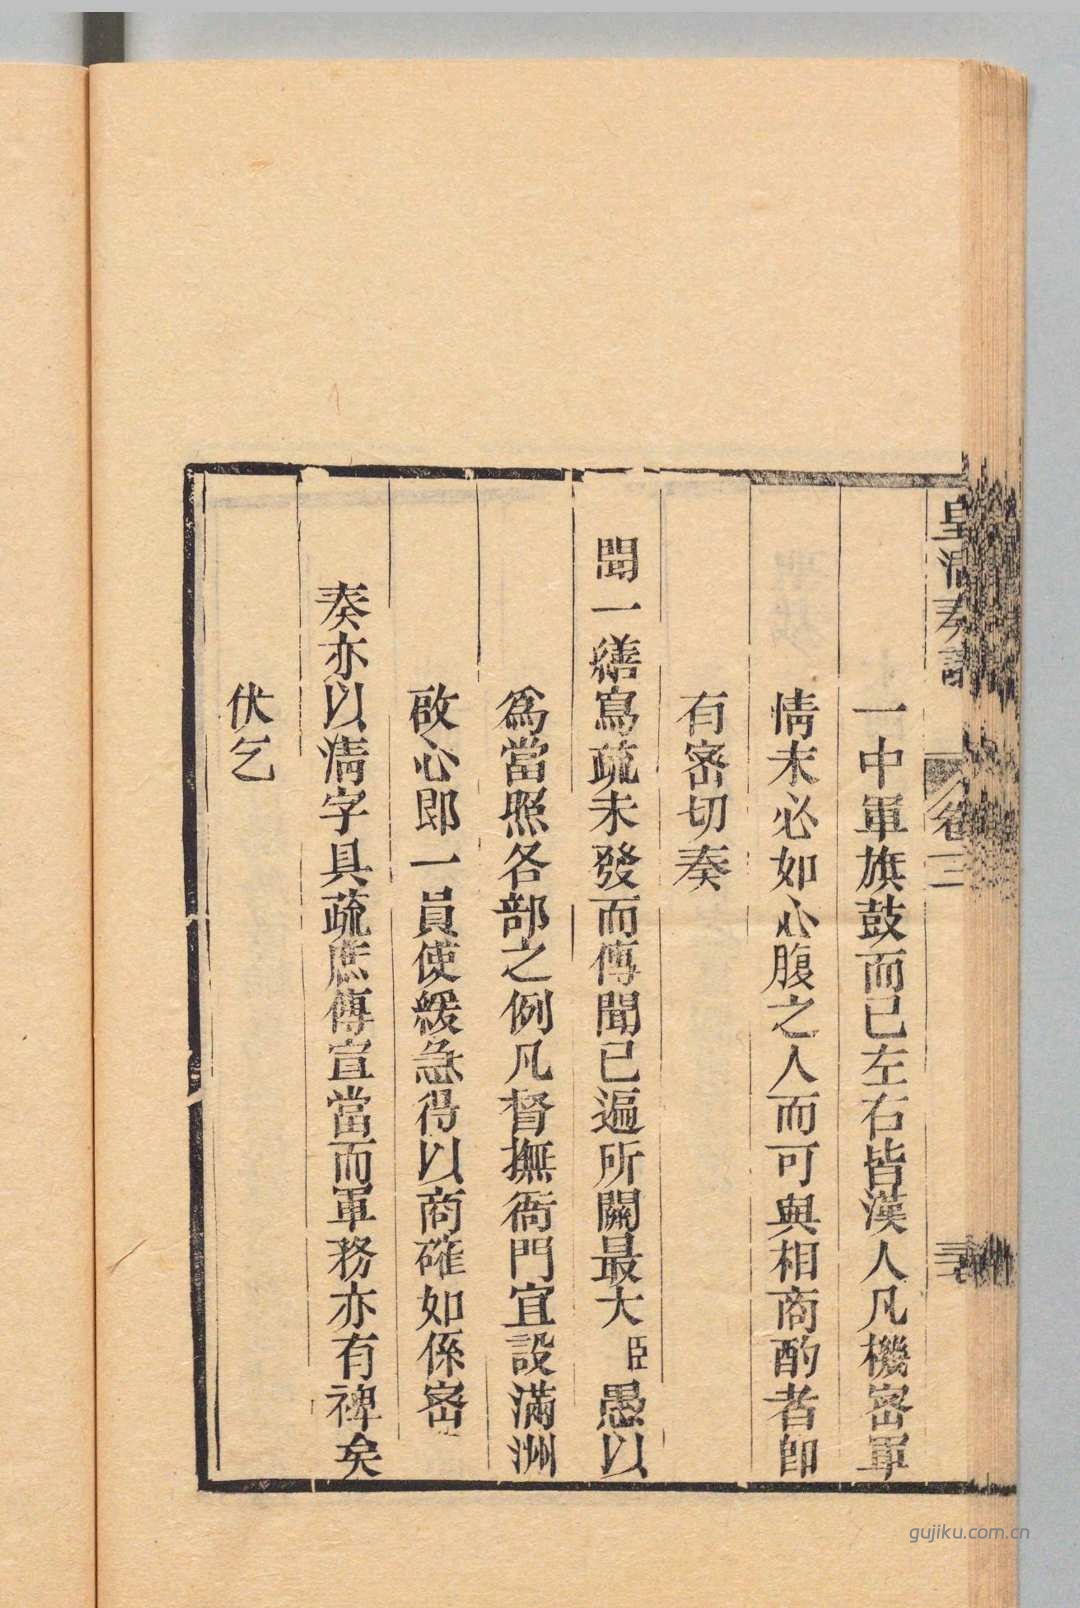 皇清奏議
卷三
一中軍旗鼓而已左右皆漢人凡機密軍
情未必如心腹之人而可與相商酌者即
有密切奏
聞一繕寫疏未發而傳聞已遍所關最大臣愚以
爲當照各部之例凡督撫衙門宜設滿洲
啟心郎一員使緩急得以商確如係密
奏亦以清字具疏庶傳宣當而軍務亦有裨矣
伏乞
gujiku.com.cn